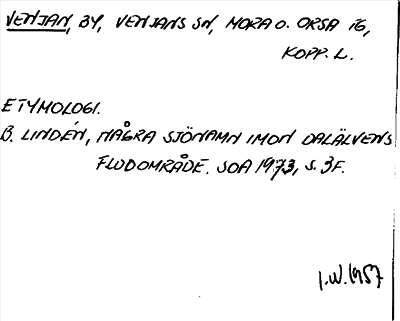 VENJAN, BY, VENJANS SN, MORA O. ORSA TG,
KOPP. L.
ETYMOLOGI.
B. LINDÉN, NÅGRA SJÖNAMN INOM DALÄLVENS
FLODOMRÅDE. SOÅ 1973, S. 3F.
I.W. 1957